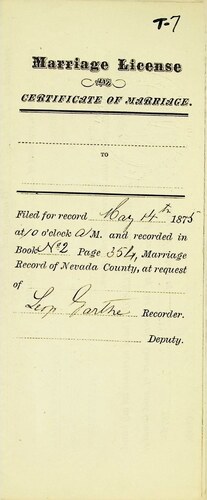 T-7
Marriage License
AND
CERTIFICATE OF MARRIAGE.
TO
Filed for record May 14th 1875
at 10 o'clock A M. and recorded in
Book No 2 Page 354, Marriage
Record of Nevada County, at request
of
Leop Garthe Recorder.
Deputy.